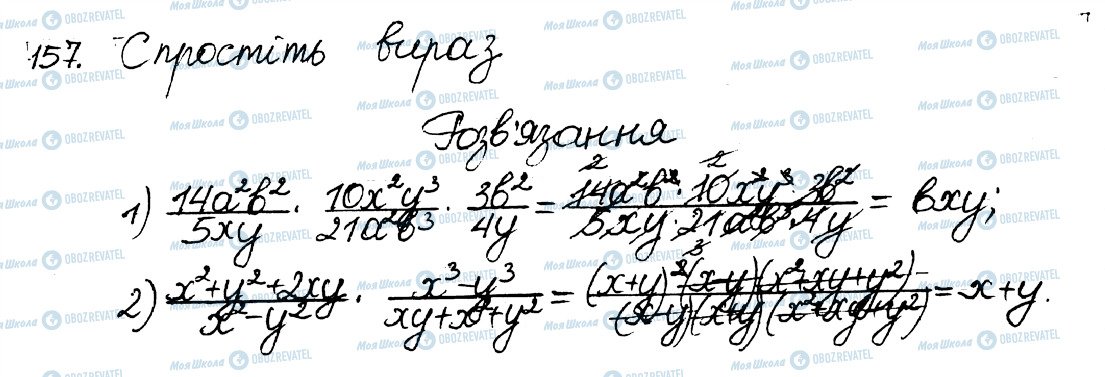 157. Спростіть вираз
Розв'язання
1) 14a²b²/5xy · 10x²y³/21a²b³ · 3b²/4y = 14a²b² · 10x²y³ · 3b²/5xy · 21a²b³ · 4y = bxy;
2) x²+y²+2xy/x²-y² · x³-y³/xy+x²+y² = (x+y)²(x-y)(x²+xy+y²)/(x-y)(x+y)(x²+xy+y²) = x+y.